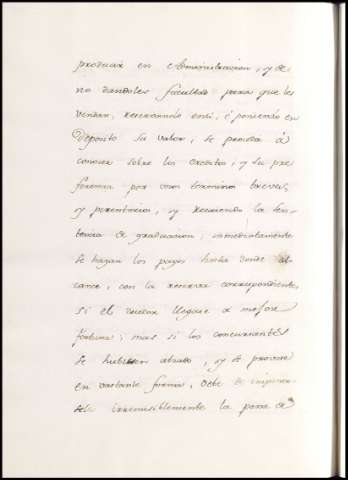 producir en Administracion, y de
no dandoles facultad para que los
vendan, reservando en sí, ó poniendo en
deposito su valor, se proceda á
conocer sobre los creditos, y su pre
ferencia por unos terminos breves,
y perentorios, y recayendo la Sen-
tencia de graduacion, inmediatamente
se hagan los pagos hasta donde al-
cance, con la reserva correspondiente
si el deudor llegare a mejor
fortuna; mas si los concursantes
se hubiesen alzado, y se provare
en bastante forma, debe de imponer
sele irremisiblemente la pena de